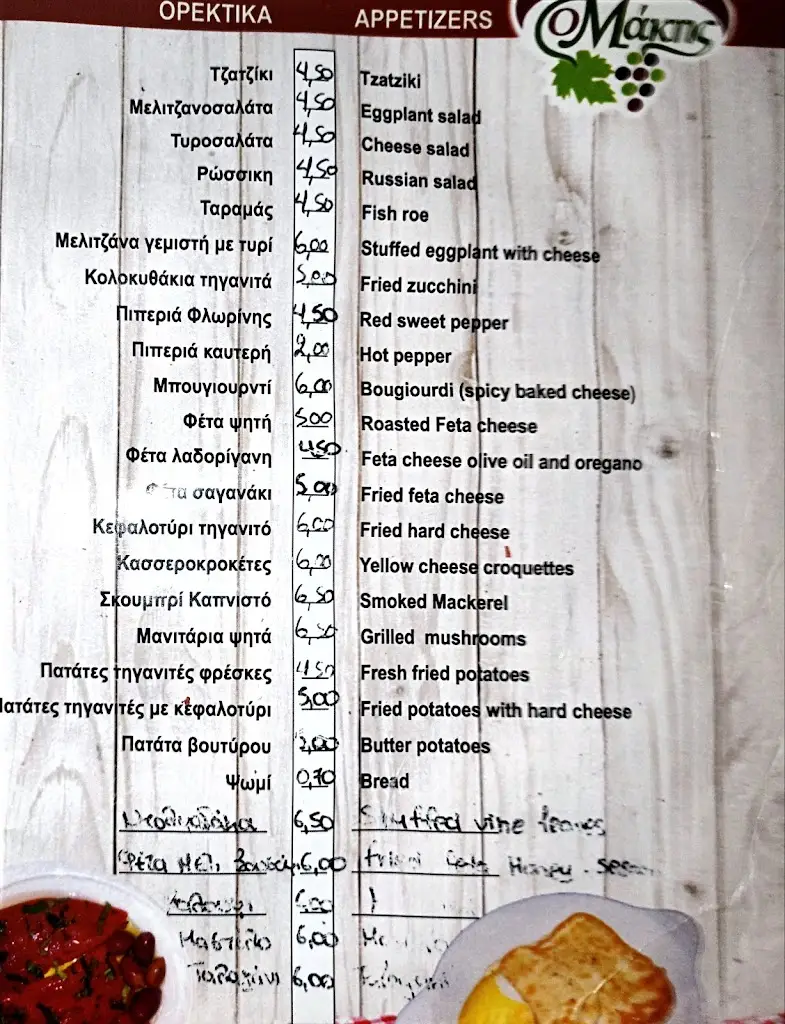 ΟΡΕΚΤΙΚΑ APPETIZERS
ο Μάκης
Τζατζίκι 4,50 Tzatziki
Μελιτζανοσαλάτα 4,50 Eggplant salad
Τυροσαλάτα 4,50 Cheese salad
Ρώσσικη 4,50 Russian salad
Ταραμάς 4,50 Fish roe
Μελιτζάνα γεμιστή με τυρί 6,00 Stuffed eggplant with cheese
Κολοκυθάκια τηγανιτά 5,00 Fried zucchini
Πιπεριά Φλωρίνης 4,50 Red sweet pepper
Πιπεριά καυτερή 2,00 Hot pepper
Μπουγιουρντί 6,00 Bougiourdi (spicy baked cheese)
Φέτα ψητή 5,00 Roasted Feta cheese
Φέτα λαδορίγανη 4,50 Feta cheese olive oil and oregano
σαγανάκι 5,00 Fried feta cheese
Κεφαλοτύρι τηγανιτό 6,00 Fried hard cheese
Κασσεροκροκέτες 6,00 Yellow cheese croquettes
Σκουμπρί Καπνιστό 6,50 Smoked Mackerel
Μανιτάρια ψητά 6,50 Grilled mushrooms
Πατάτες τηγανιτές φρέσκες 4,50 Fresh fried potatoes
Πατάτες τηγανιτές με κεφαλοτύρι 5,00 Fried potatoes with hard cheese
Πατάτα βουτύρου 2,00 Butter potatoes
Ψωμί 0,70 Bread
6,50 Stuffed vine
Φέτα μελι 6,00 Honey
6,00
6,00
6,00